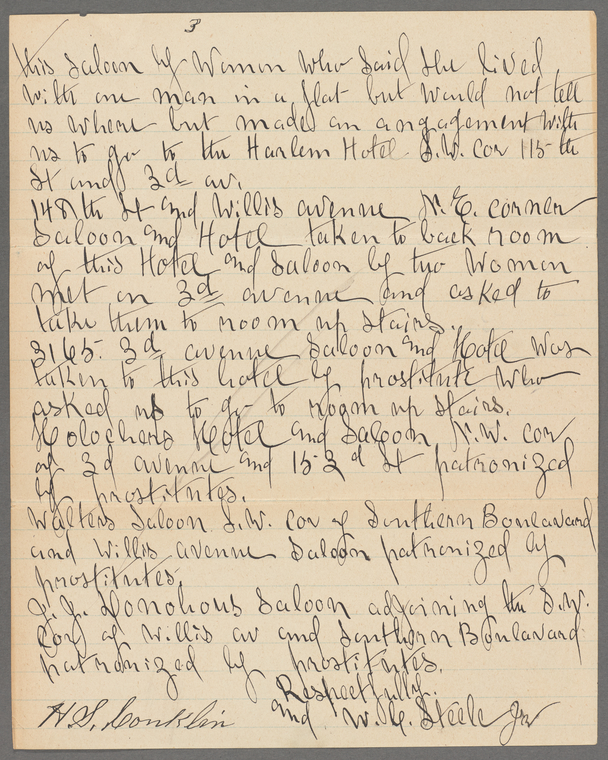 3
this Saloon by Woman Who Said She lived
With one man in a flat but Would not tell
us where but made an angagement With
us to go to the Harlem Hotel S.W. cor 115 th
St and 3d av.
148th St and Willis avenue N.E. corner
Saloon and Hotel taken to back room
of this Hotel and Saloon by two Woman
met on 3d avenue and asked to
take them to room up stairs.
3165. 3d avenue Saloon and Hotel Was
taken to this hotel by prostitute Who
asked us to go to room up stairs.
Holochers Hotel and Saloon N.W. cor
of 3d avenue and 153d St patronized
by prostitutes.
Walters Saloon S.W. cor of Southern Boulavard
and Willis avenue Saloon patronized by
prostitutes.
J.J. Donohous Saloon adjoining the S.W.
Cor of Willis av and Southern Boulavard
patronized by prostitutes.
Respectfully.
H.S. Conklin and W.C. Steele Jr